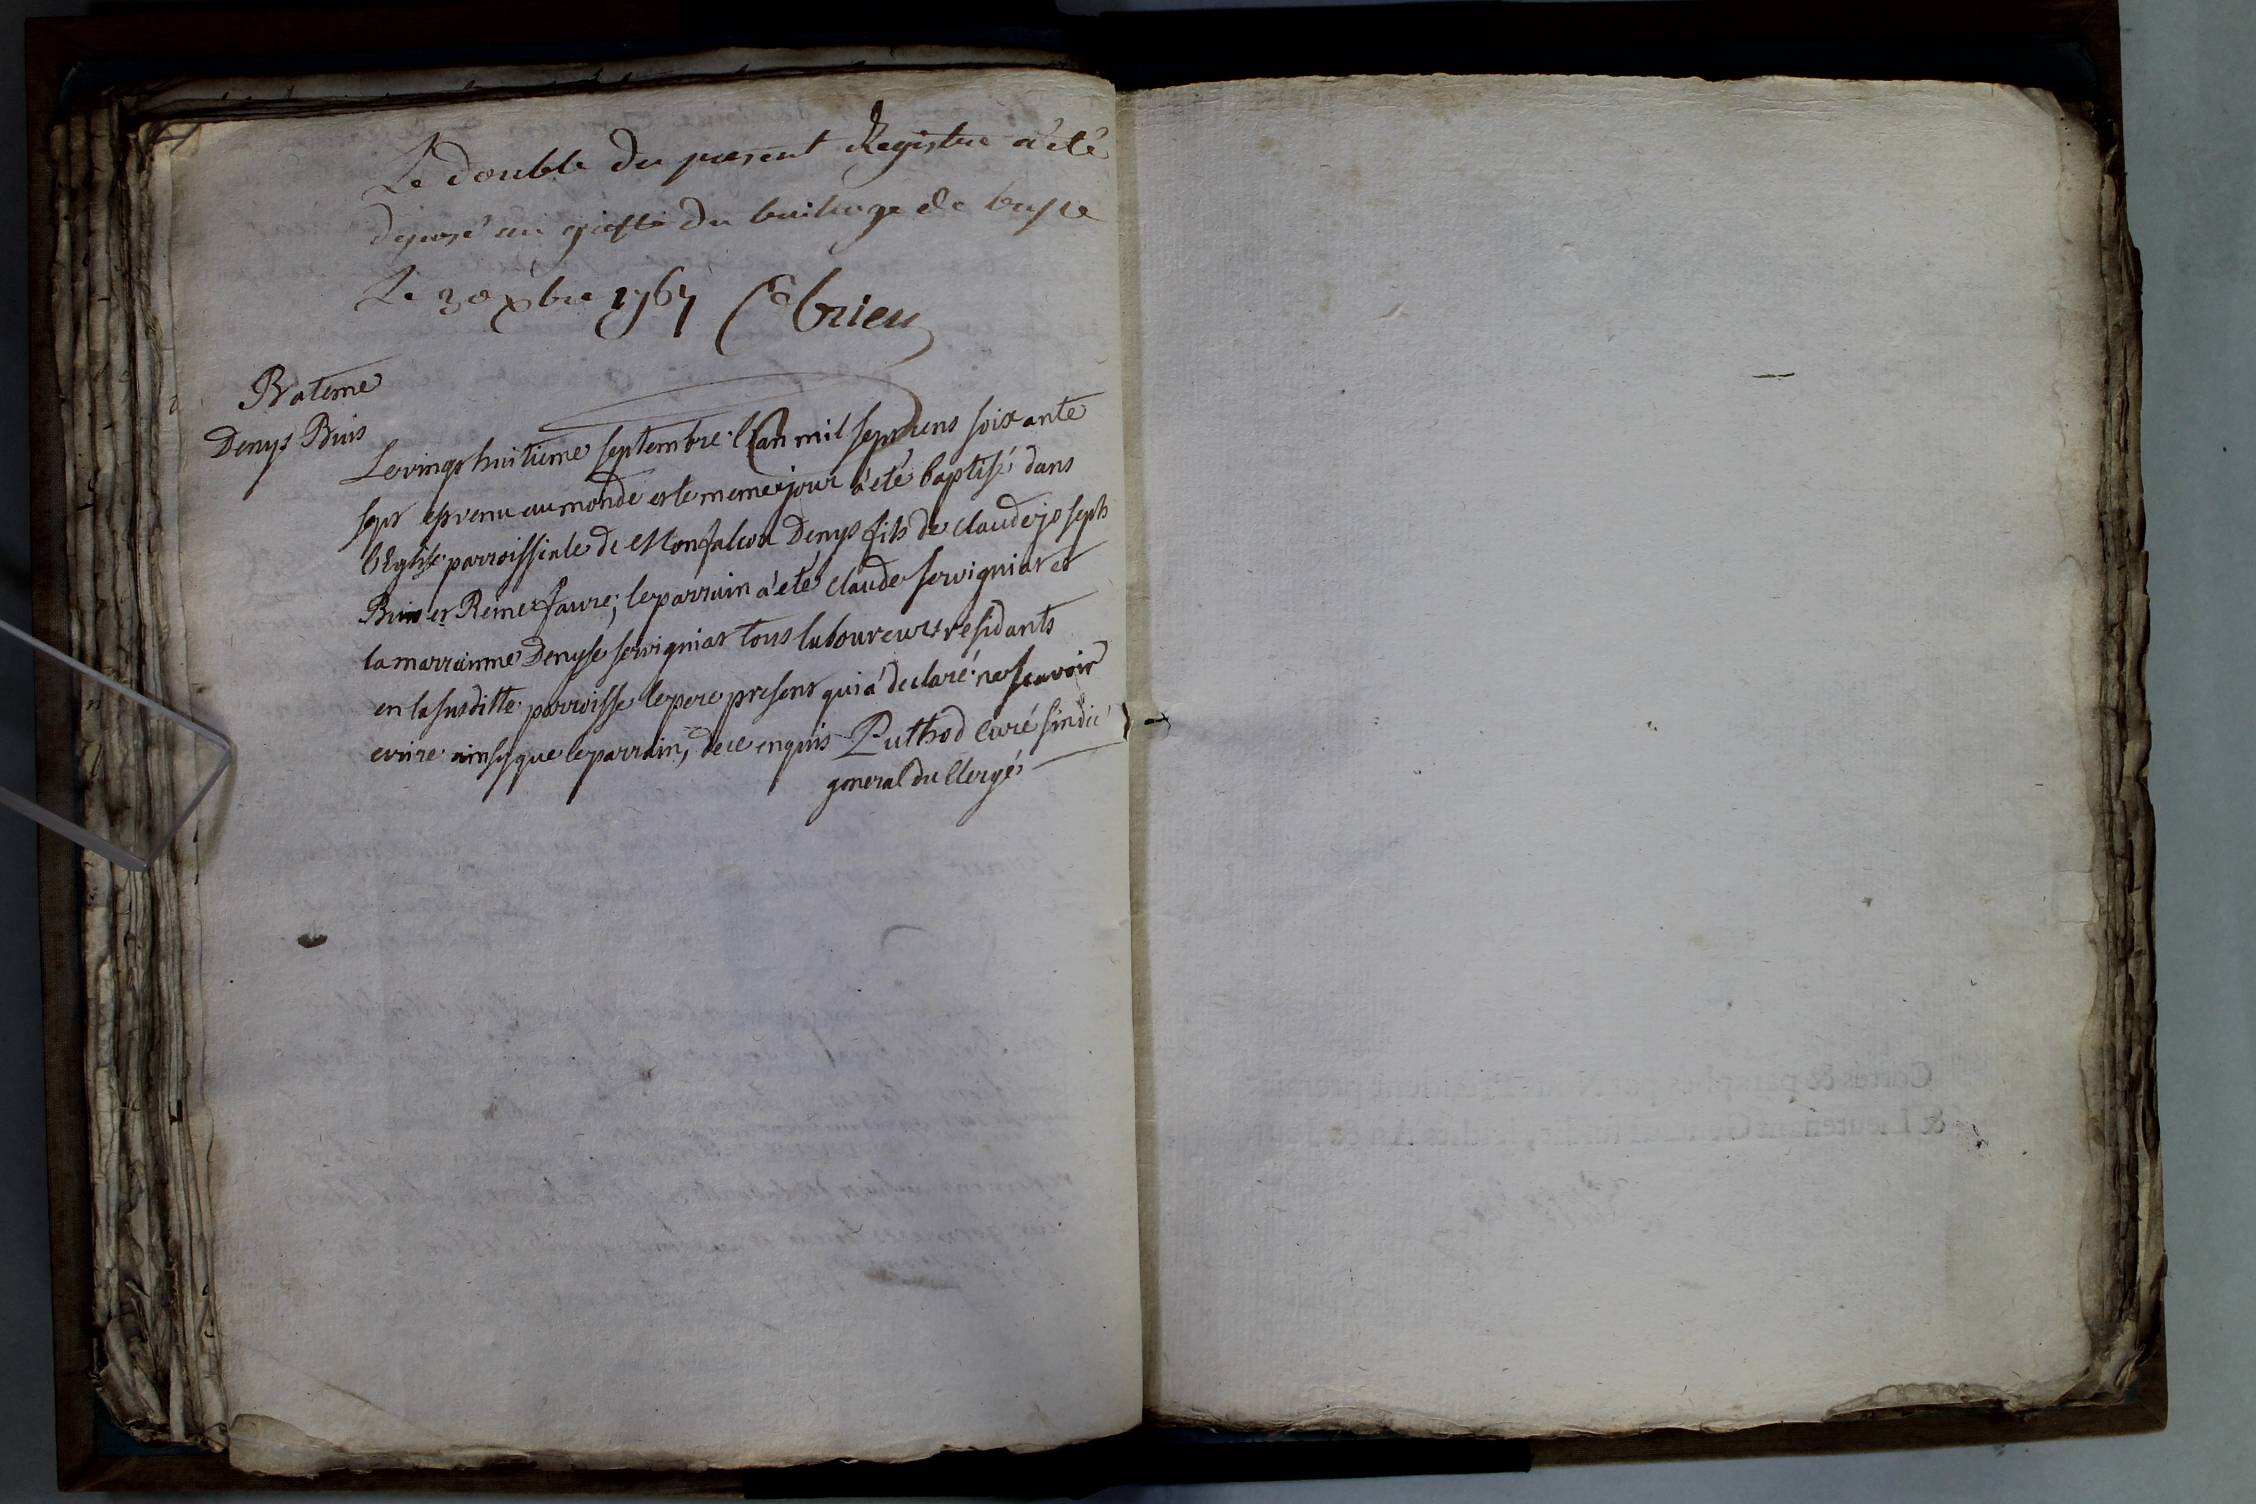 Le double du present Registre a été
deposé au greffe du bailiage de bresse
Le 30 xbre 1767 Brieu
Bateme
Denys Buis
Le vingt huitieme septembre l'an mil sept cens soixante
sept est venu au monde et le meme jour a été baptisé dans
l'Eglise parroissiale de Monfalcon Denys fils de claude joseph
Buis et Reine faure; le parrain a été claude servigniat et
la marrainne Denyse servigniat tous laboureurs residants
en la susditte parroisse le pere present qui a declaré ne scavoir
ecrire ainsy que le parrain, de ce enquis Puthod curé sindic
general du Clergé